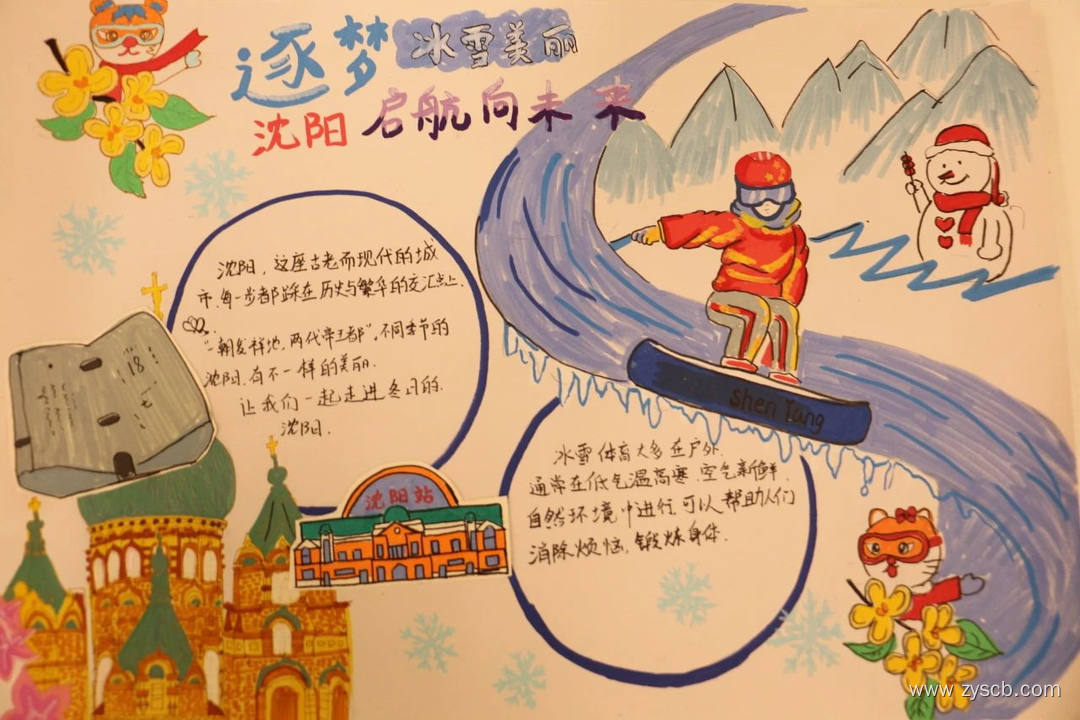 逐梦冰雪美丽
沈阳启航向未来
沈阳，这座古老而现代的城
市，每一步都踩在历史与繁华的交汇点上，
“一朝发祥地，两代帝王都”，不同季节的
沈阳，有不一样的美丽。
让我们一起走进冬日的
沈阳。
18
沈阳站
shen Yang
冰雪体育大多在户外，
通常在低气温高寒、空气新鲜、
自然环境中进行，可以帮助人们
消除烦恼，锻炼身体。
www.zyscb.com